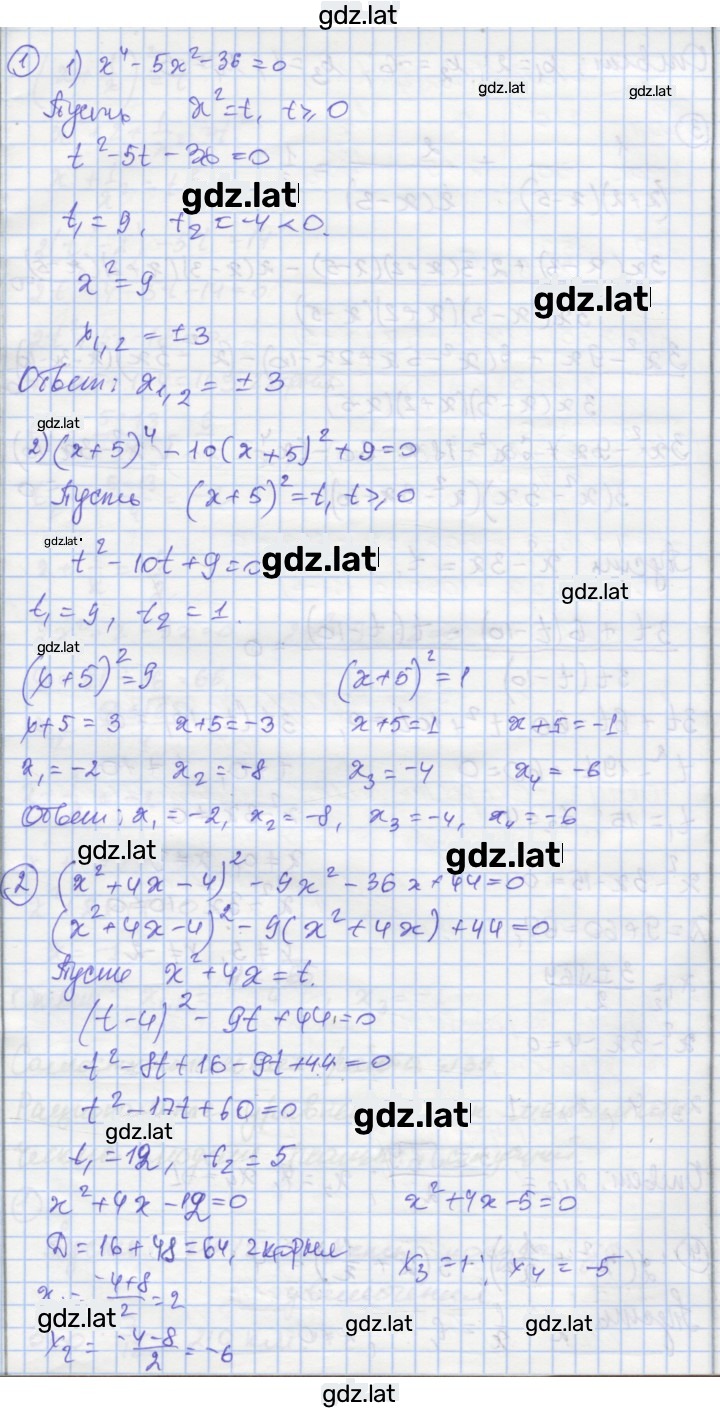 gdz.lat
① 1) x⁴ - 5x² - 36 = 0
gdz.lat gdz.lat
Пусть x² = t, t ⩾ 0
t² - 5t - 36 = 0
gdz.lat
t₁ = 9, t₂ = -4 < 0.
x² = 9
gdz.lat
x₁,₂ = ± 3
Ответ: x₁,₂ = ± 3
gdz.lat
2) (x + 5)⁴ - 10(x + 5)² + 9 = 0
Пусть (x + 5)² = t, t ⩾ 0
gdz.lat
t² - 10t + 9 = 0
gdz.lat
gdz.lat
t₁ = 9, t₂ = 1.
gdz.lat
(x + 5)² = 9 (x + 5)² = 1
x + 5 = 3 x + 5 = -3 x + 5 = 1 x + 5 = -1
x₁ = -2 x₂ = -8 x₃ = -4 x₄ = -6
Ответ: x₁ = -2, x₂ = -8, x₃ = -4, x₄ = -6
gdz.lat gdz.lat
② (x² + 4x - 4)² - 9x² - 36x + 44 = 0
(x² + 4x - 4)² - 9(x² + 4x) + 44 = 0
Пусть x² + 4x = t.
(t - 4)² - 9t + 44 = 0
t² - 8t + 16 - 9t + 44 = 0
t² - 17t + 60 = 0
gdz.lat
gdz.lat
t₁ = 12, t₂ = 5
x² + 4x - 12 = 0 x² + 4x - 5 = 0
D = 16 + 48 = 64, 2 корня
x₃ = 1; x₄ = -5
x₁ = (-4+8)/2 = 2
gdz.lat gdz.lat gdz.lat
x₂ = (-4-8)/2 = -6
gdz.lat